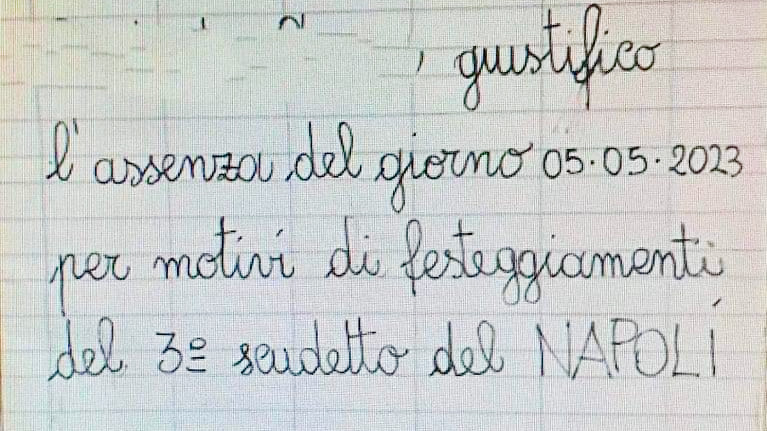 , giustifico
l'assenza del giorno 05.05.2023
per motivi di festeggiamenti
del 3º scudetto del NAPOLI